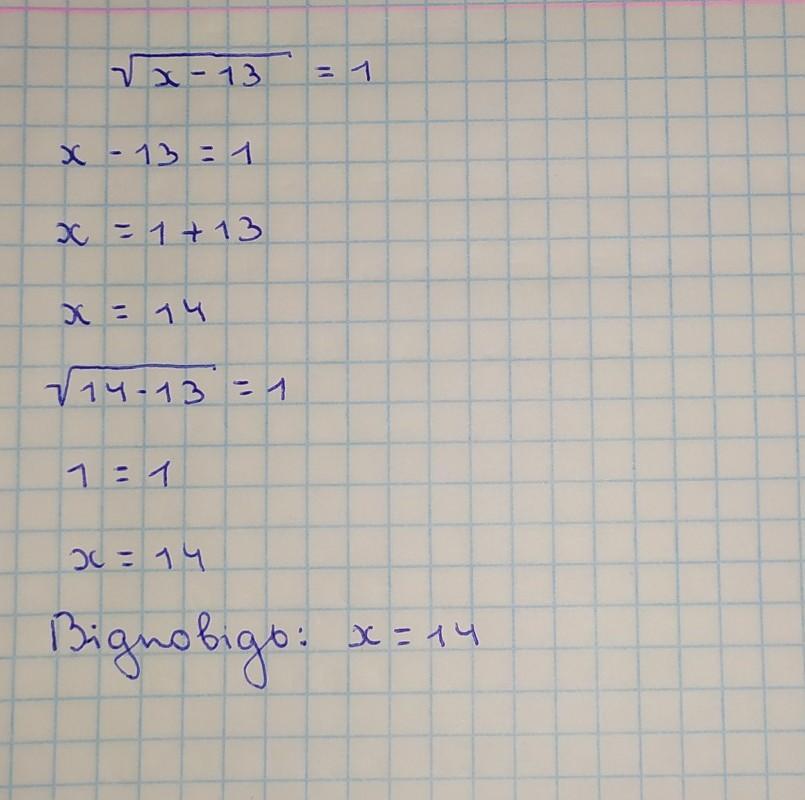 √(x - 13) = 1
x - 13 = 1
x = 1 + 13
x = 14
√(14 - 13) = 1
1 = 1
x = 14
Відповідь: x = 14